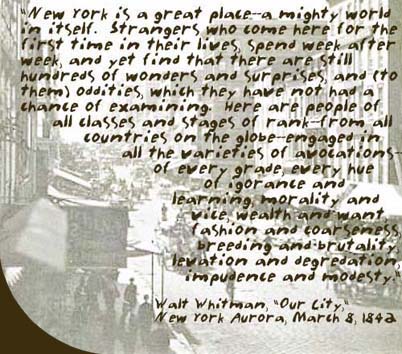 "New York is a great place--a mighty world
in itself. Strangers who come here for the
first time in their lives, spend week after
week, and yet find that there are still
hundreds of wonders and surprises, and (to
them) oddities, which they have not had a
chance of examining. Here are people of
all classes and stages of rank--from all
countries on the globe--engaged in
all the varieties of avocations--
of every grade, every hue
of igorance and
learning, morality and
vice, wealth and want,
fashion and coarseness,
breeding and brutality,
levation and degredation,
impudence and modesty."
Walt Whitman, "Our City,"
New York Aurora, March 8, 1842